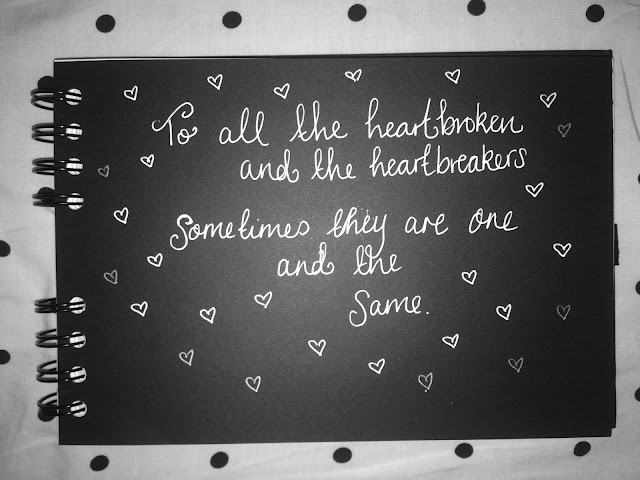 To all the heartbroken
and the heartbreakers
Sometimes they are one
and the
Same.